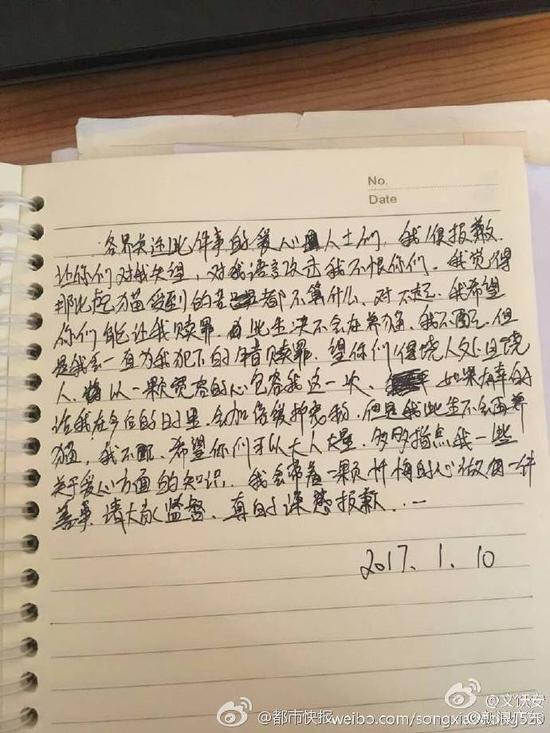 No.
Date
各界关注此件事的爱心人士们，我很报歉
让你们对我失望，对我语言攻击我不恨你们。我觉得
那比起猫受到的苦都不算什么，对不起。我希望
你们能让我赎罪。此生决不会在养猫，我不配，但
是我会一直为我犯下的错赎罪。望你们得饶人处且饶
人，以一颗宽容的心包容我这一次，如果有幸的
话我在今后的日里，会加倍爱护宠物，但是我此生不会再养
猫，我不配。希望你们可以大人大量，多多指点我一些
关于爱心方面的知识，我会带着一颗忏悔的心做每一件
善事，请大家监督，真的深感报歉..一
2017.1.10
@文伏安
@都市快报
@新浪广东
weibo.com/songxiao